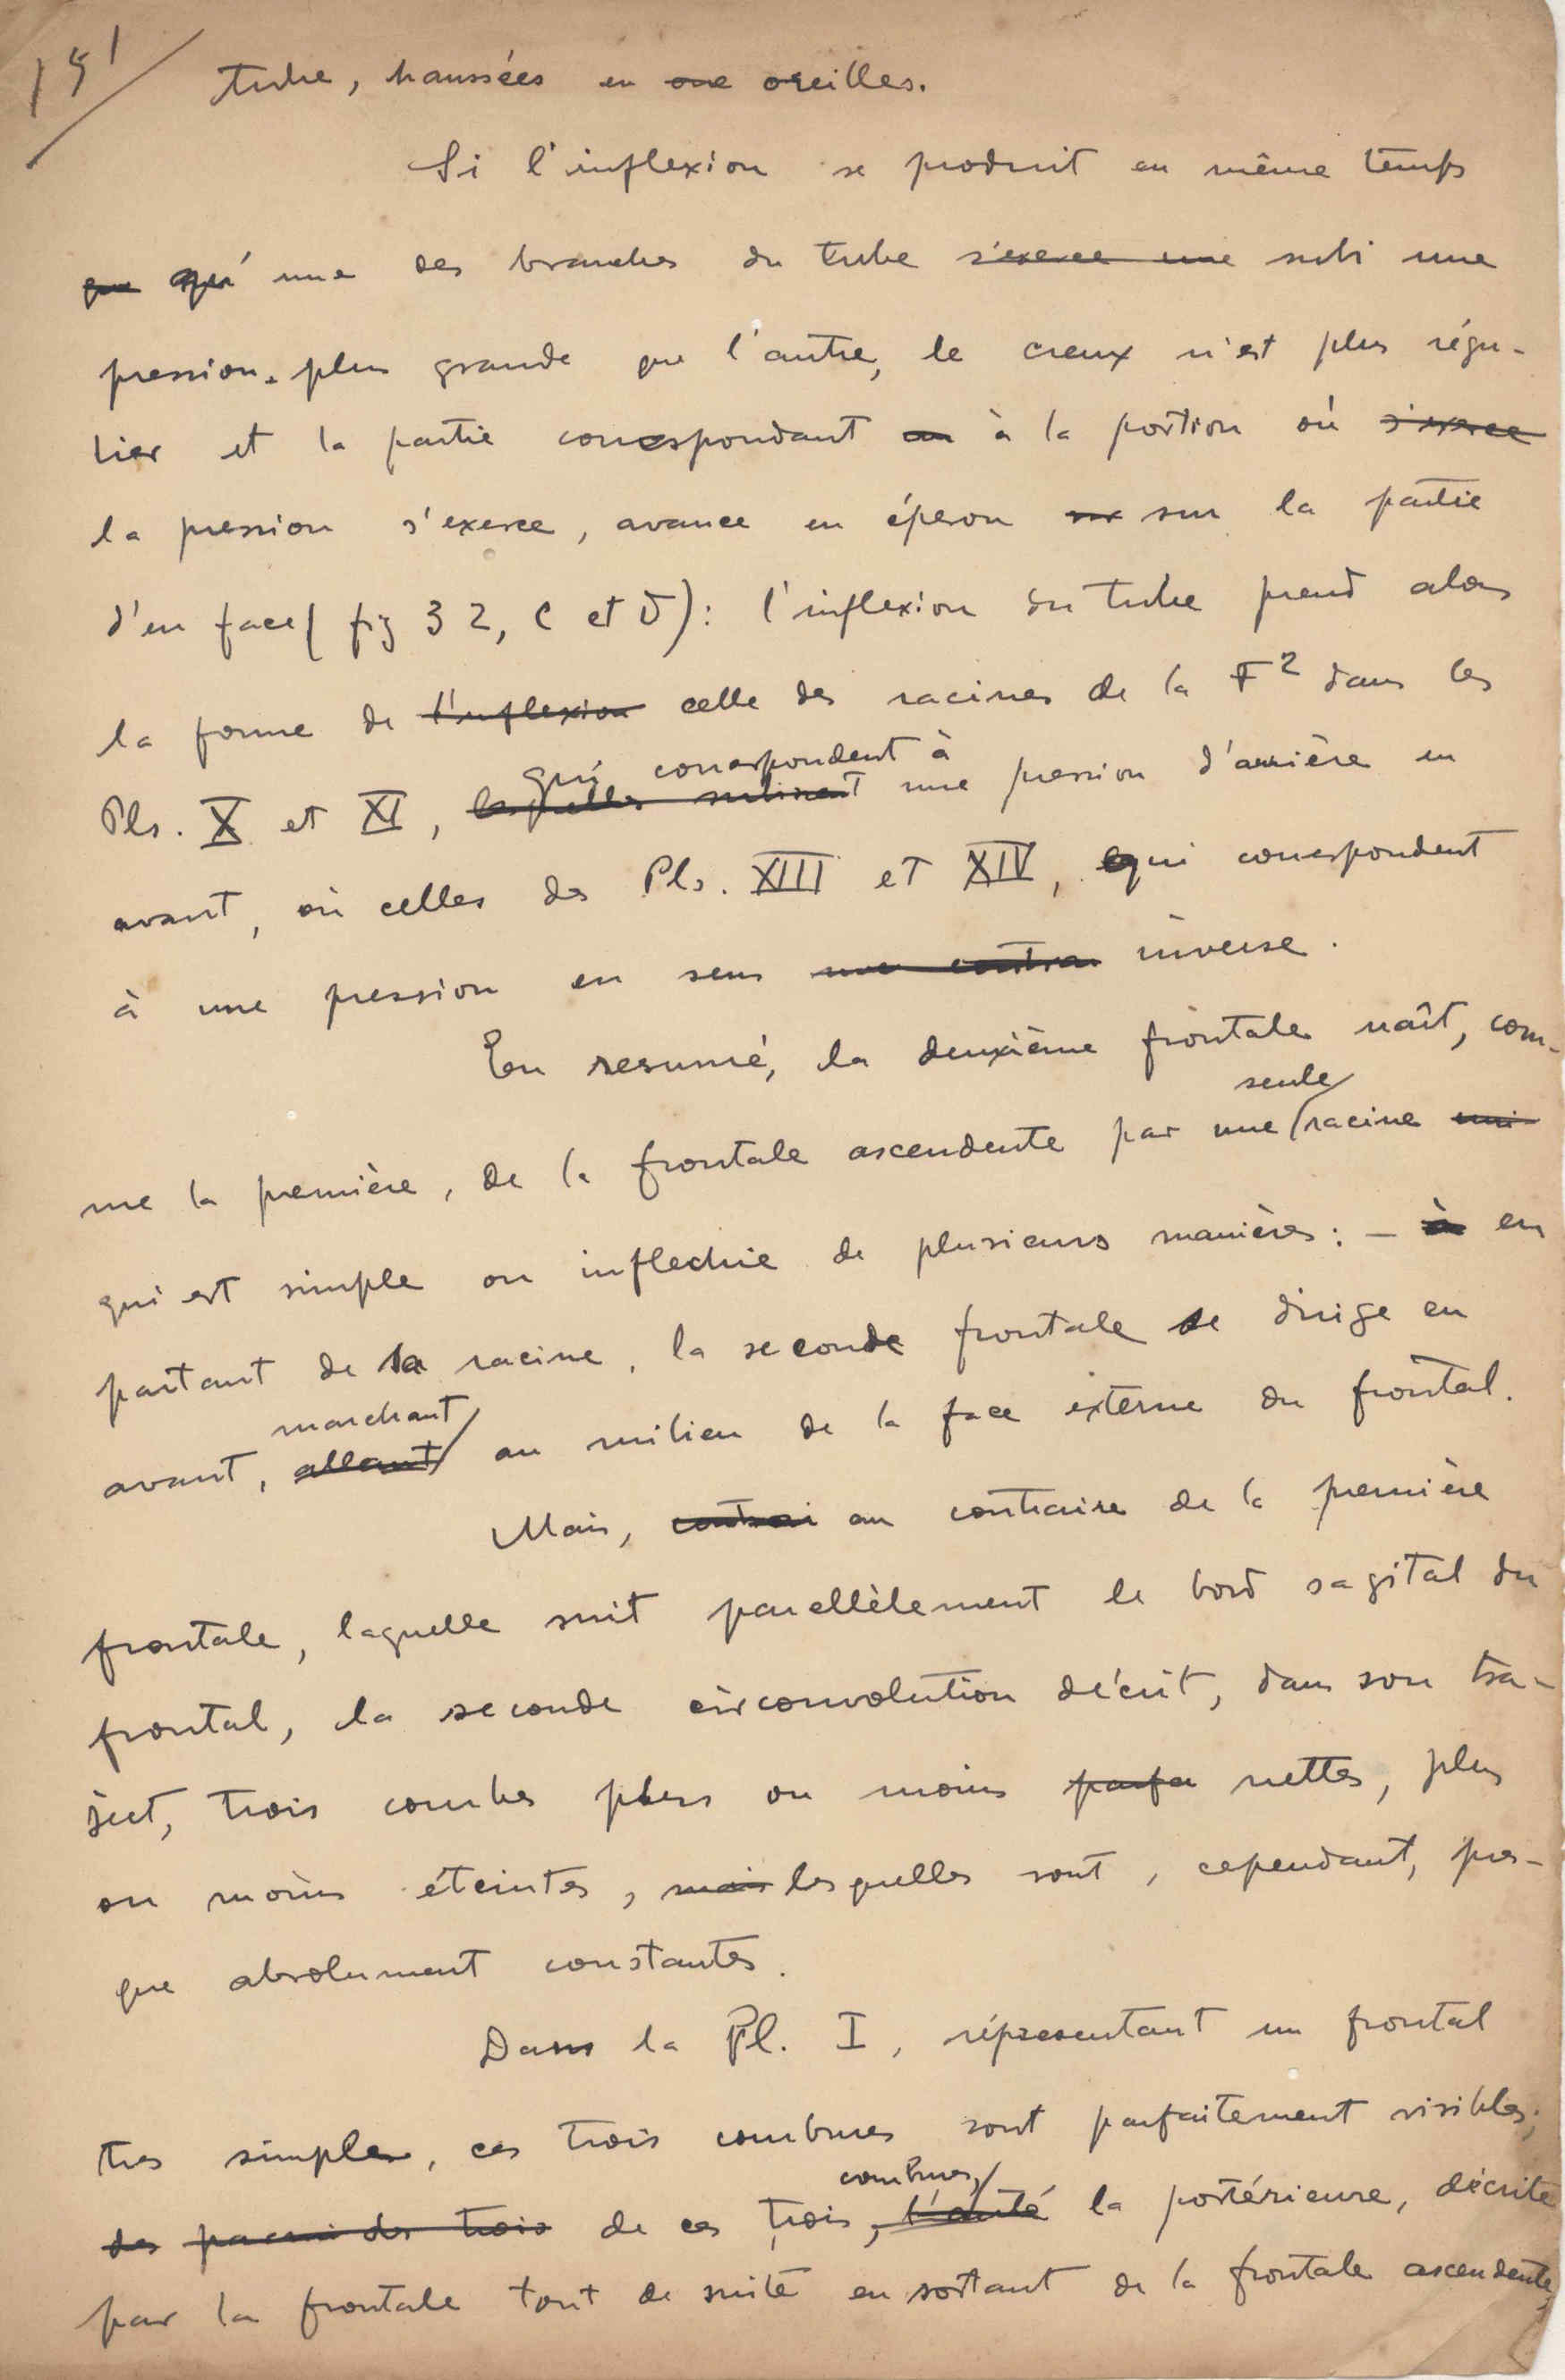 151
tube, haussées en one oreilles.
Si l'inflexion se produit en même temps
que qu'une des branches du tube s'exerce une subi une
pression plus grande que l'autre, le creux n'est plus régu-
lier et la partie correspondant au à la portion où s'exerce
la pression s'exerce, avance en éperon sur la partie
d'en face (fig 32, C et D): l'inflexion du tube prend alors
la forme de l'inflexion celle des racines de la F² dans les
qui correspondent à
Pls. X et XI, lesquelles subissent une pression d'arrière en
avant, où celles des Pls. XIII et XIV, qui correspondent
à une pression en sens inverse.
En resumé, la deuxième frontale naît, com-
seule
me la première, de la frontale ascendente par une racine uni
qui est simple ou inflechie de plusieurs manières: - à en
partant de sa racine, la seconde frontale se dirige en
marchant
avant, allant au milieu de la face externe du frontal.
Mais, contrai au contraire de la première
frontale, laquelle suit parellèlement le bord sagital du
frontal, la seconde circonvolution décrit, dans son tra-
ject, trois courbes plus ou moins parfa nettes, plus
ou moins éteintes, mais lesquelles sont, cependant, pres-
que absolument constantes.
Dans la Pl. I, réprésentant un frontal
tres simple, ces trois courbures sont parfaitement visibles;
courbures,
des parmi des trois de ces trois, la postérieure, décrite
par la frontale tout de suite en sortant de la frontale ascendente,